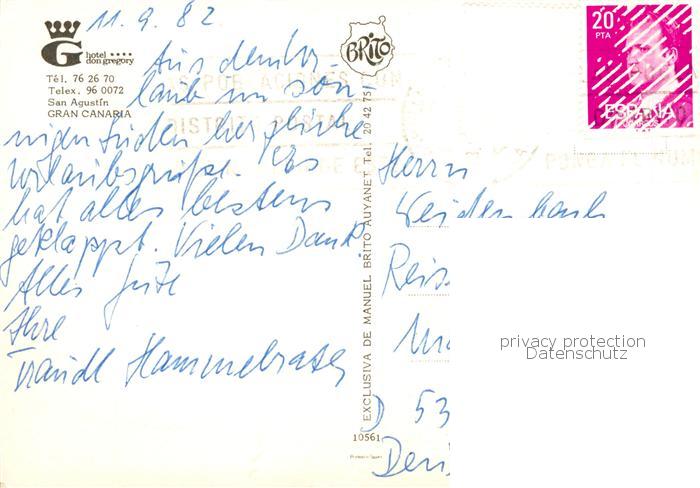 11.9.82
G hotel ****
don gregory
Tél. 76 26 70
Telex. 96 0072
San Agustín
GRAN CANARIA
Aus dem Ur-
laub im son-
nigen Süden herzliche
Urlaubsgrüße. Es
hat alles bestens
geklappt. Vielen Dank.
Alles Gute
Ihre
Traudl
BRITO
EXCLUSIVA DE MANUEL BRITO AUYANET Tel. 20 42 75
10561
20
PTA
ESPAÑA
POR
DISTRITO POSTAL
PONGA
Herrn
Weidenbach
Reis
D 53
privacy protection
Datenschutz